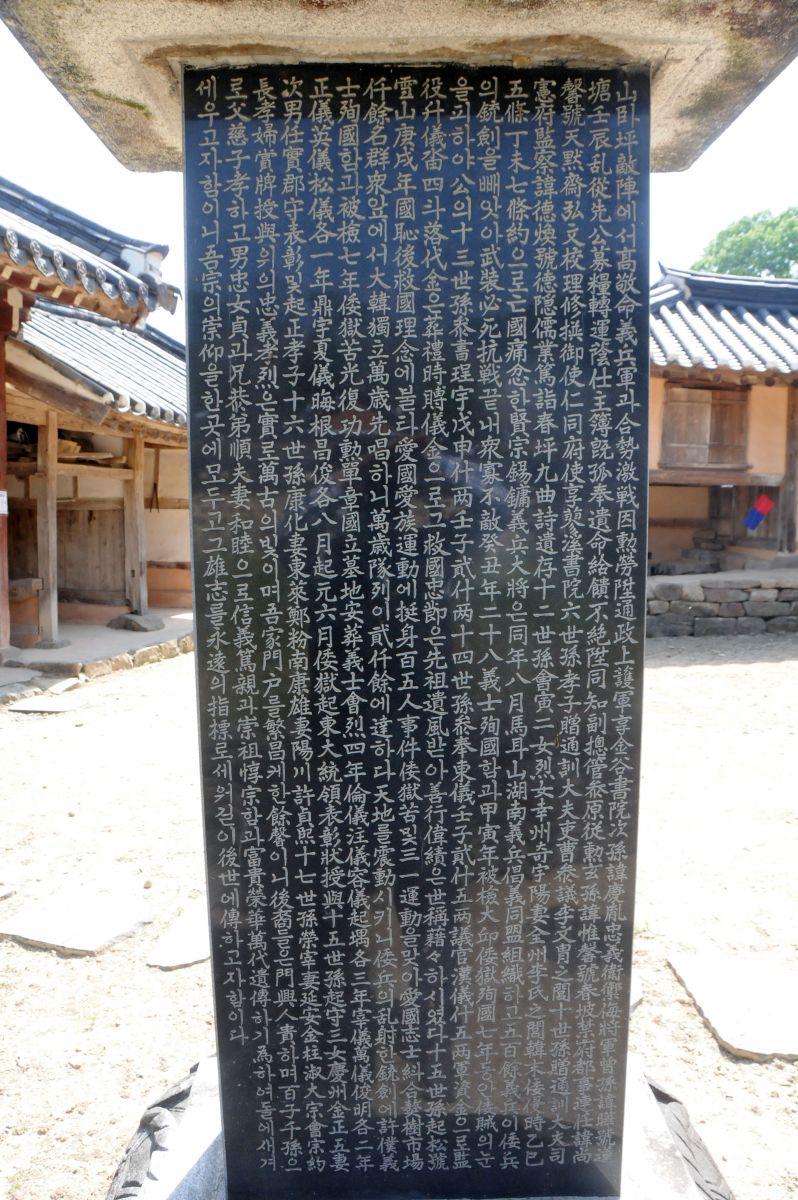 山臥坪敵陣에서高敬命義兵軍과合勢激戰因勲勞陞通政上護軍享金谷書院次孫諱慶胤忠義衛禦侮將軍曾孫諱 號蓮
塘壬辰乱從先公募糧轉運蔭仕主簿旣孤奉遺命給饋不絶陞同知副摠管叅原從勲玄孫諱惟馨號春坡某府都事 仕諱尚
馨號天黙齋弘文校理修撰御使仁同府使享 書院六世孫孝子贈通訓大夫吏曹叅議李文胄之閣十世孫贈通訓大夫司
憲府監察諱德煥號德隐儒業篤詣春坪九曲詩遺存十二世孫會寅二女烈女幸州奇宇陽妻全州李氏之閣韓末倭侵時乙巳
五條丁未七條約으로亡國痛忿하賢宗錫鏞義兵大將은同年八月馬耳山湖南義兵倡義同盟組織하고五百餘義兵이倭兵
의銃劍을빼앗아武装必死抗戦끝내衆寡不敵癸丑年二十八義士殉國함과甲寅年被檢大邱倭獄殉國七年동안倭賊의눈
을피하야公의十三世孫叅書珵宇戊申什两壬子貳什两十四世孫叅奉東儀壬子貳什五两議官漢儀什五两軍資金으로監
役升儀沓四斗落代金은葬禮時賻儀金으로그救國忠節은先祖遺風받아善行偉績은世稱藉々하시였다十五世孫起松號
雲山庚戌年國恥後救國理念에불타愛國愛族運動에挺身百五人事件倭獄苦및三一運動을맞아愛國志士糾合藝樹市場
仟餘名群衆앞에서大韓獨立萬歲先唱하니萬歲隊列이貳仟餘에達하다天地를震動시키니倭兵의乱射한銃劍에許僕義
士殉國함과被檢七年倭獄苦光復功勲單章國立墓地安葬義士會烈四年倫儀汪儀容儀起堣各三年宰儀萬儀俊明各二年
正儀英儀松儀各一年鼎宇夏儀晦根昌俊各八月起元六月倭獄起東大統領表彰狀授與十五世孫起守三女慶州金正五妻
次男任實郡守表彰및起正孝子十六世孫康化妻東萊鄭粉南康雄妻陽川許貞熙十七世孫榮宰妻延安金柱淑大宗會宗約
長孝婦賞牌授與의의忠義孝烈은實로萬古의빛이며吾家門戶를繁昌케한餘馨이니後裔들은門興人貴하며百子千孫으
로父慈子孝하고男忠女貞과兄恭弟順夫妻和睦으로信義篤親과崇祖惇宗함과富貴榮華萬代遺傳하기爲하여돌에새겨
세우고자함이니吾宗의宗仰을한곳에모두고그雄志를永遠의指標로세워길이後世에傳하고자함이다